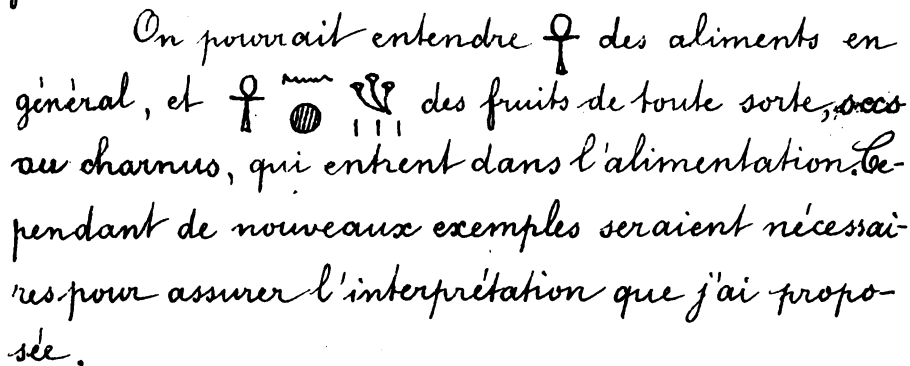 On pourrait entendre 𓋹 des aliments en
général, et 𓋹 𓈖 𓐍 𓆰 𓏥 des fruits de toute sorte, secs
ou charnus, qui entrent dans l'alimentation. Ce-
pendant de nouveaux exemples seraient nécessai-
res pour assurer l'interprétation que j'ai propo-
sée.